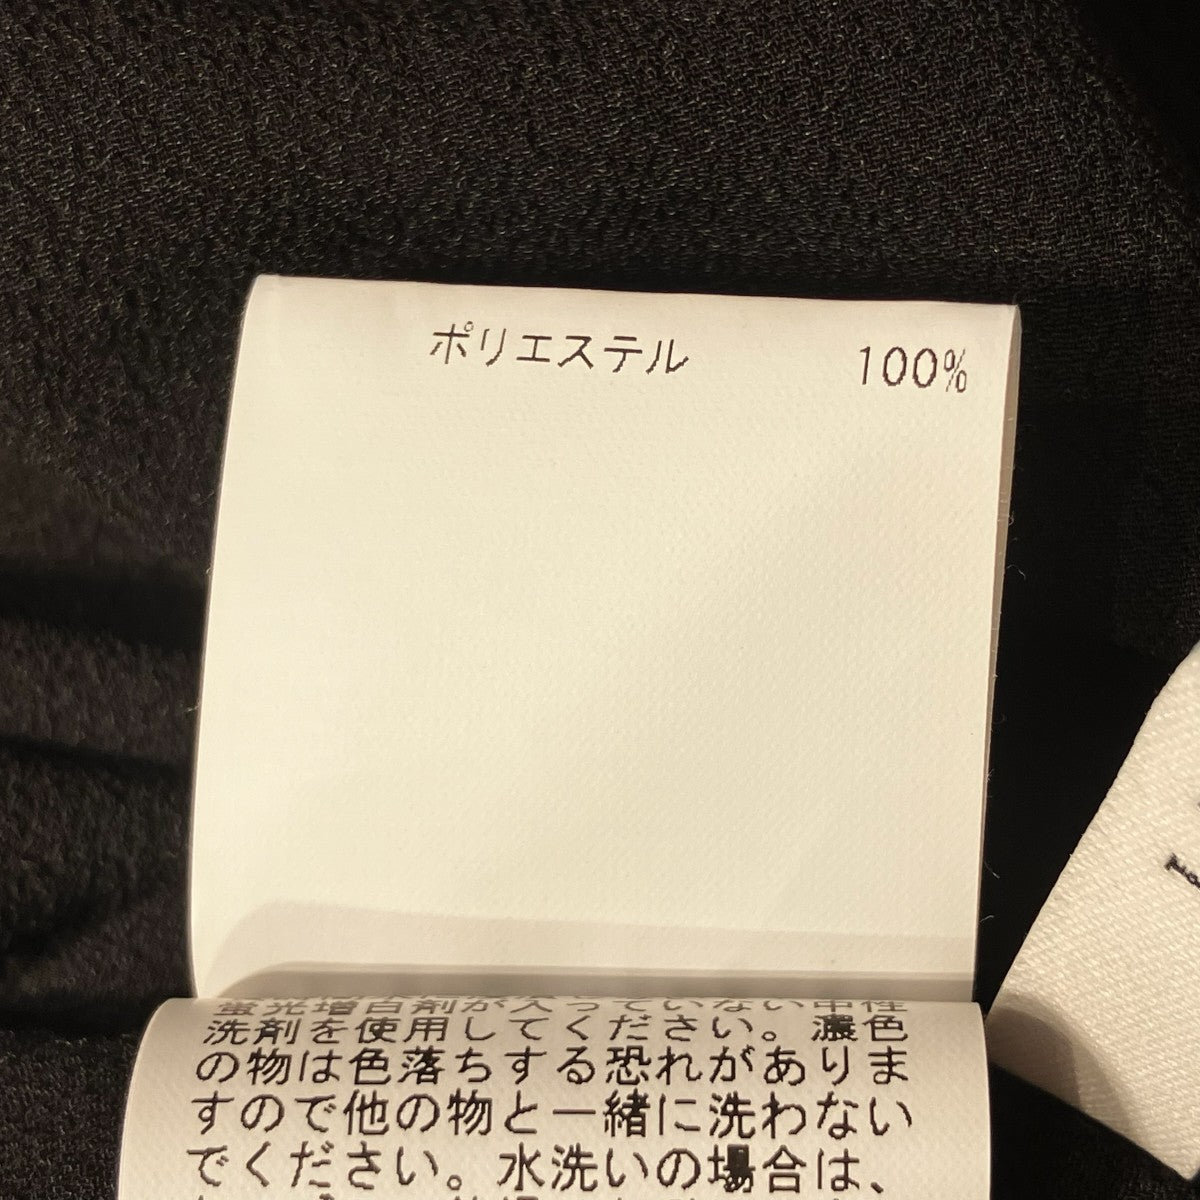 ポリエステル 100%
蛍光増白剤が入っていない中性
洗剤を使用してください。濃色
の物は色落ちする恐れがありま
すので他の物と一緒に洗わない
でください。水洗いの場合は、